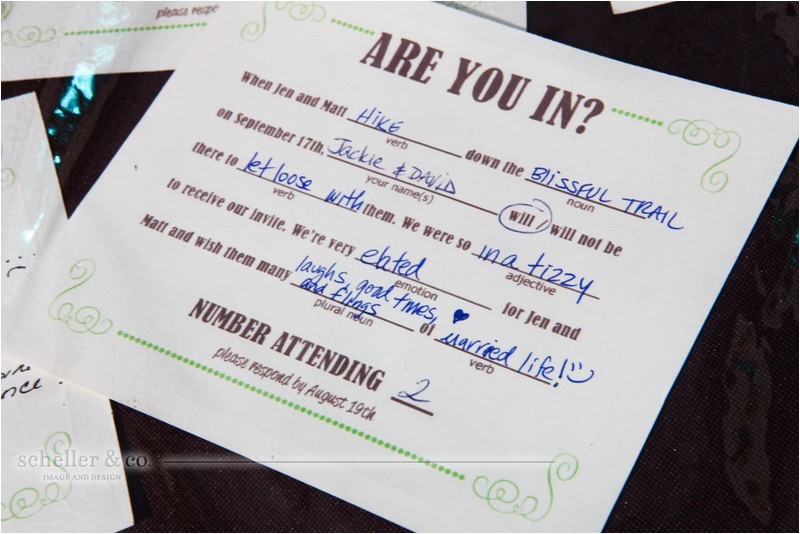 please respo
ARE YOU IN?
When Jen and Matt HIKE down the BLISSFUL TRAIL
verb
noun
on September 17th, Jackie & DAVID will / will not be
your name(s)
there to let loose with them. We were so in a tizzy
verb
adjective
to receive our invite. We're very elated for Jen and
emotion
Matt and wish them many laughs, good times, ♥ and flings of Married life! :)
plural noun
verb
NUMBER ATTENDING 2
please respond by August 19th
nce.
scheller & co.
IMAGE AND DESIGN